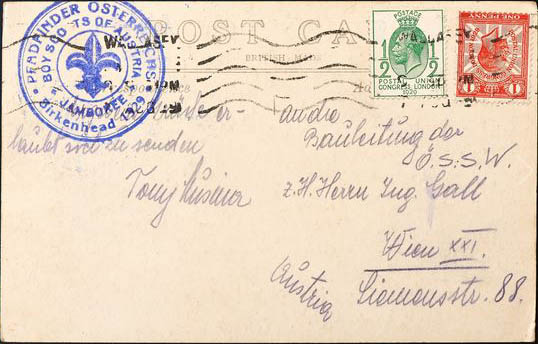 POST CA
PFADFINDER ÖSTERREICHS
BOY SCO TS OF AUSTRIA
JAMBOREE
Birkenhead 1929
WALLASEY
POSTAGE
1 2
POSTAL UNION
CONGRESS LONDON
1929
ONE PENNY
1 1
er-
laubt sich zu senden
Tony
an die
Bauleitung der
Ö.S.S.W.
z.H. Herrn Ing. Gall
Wien XXI.
Siemensstr. 88.
Austria